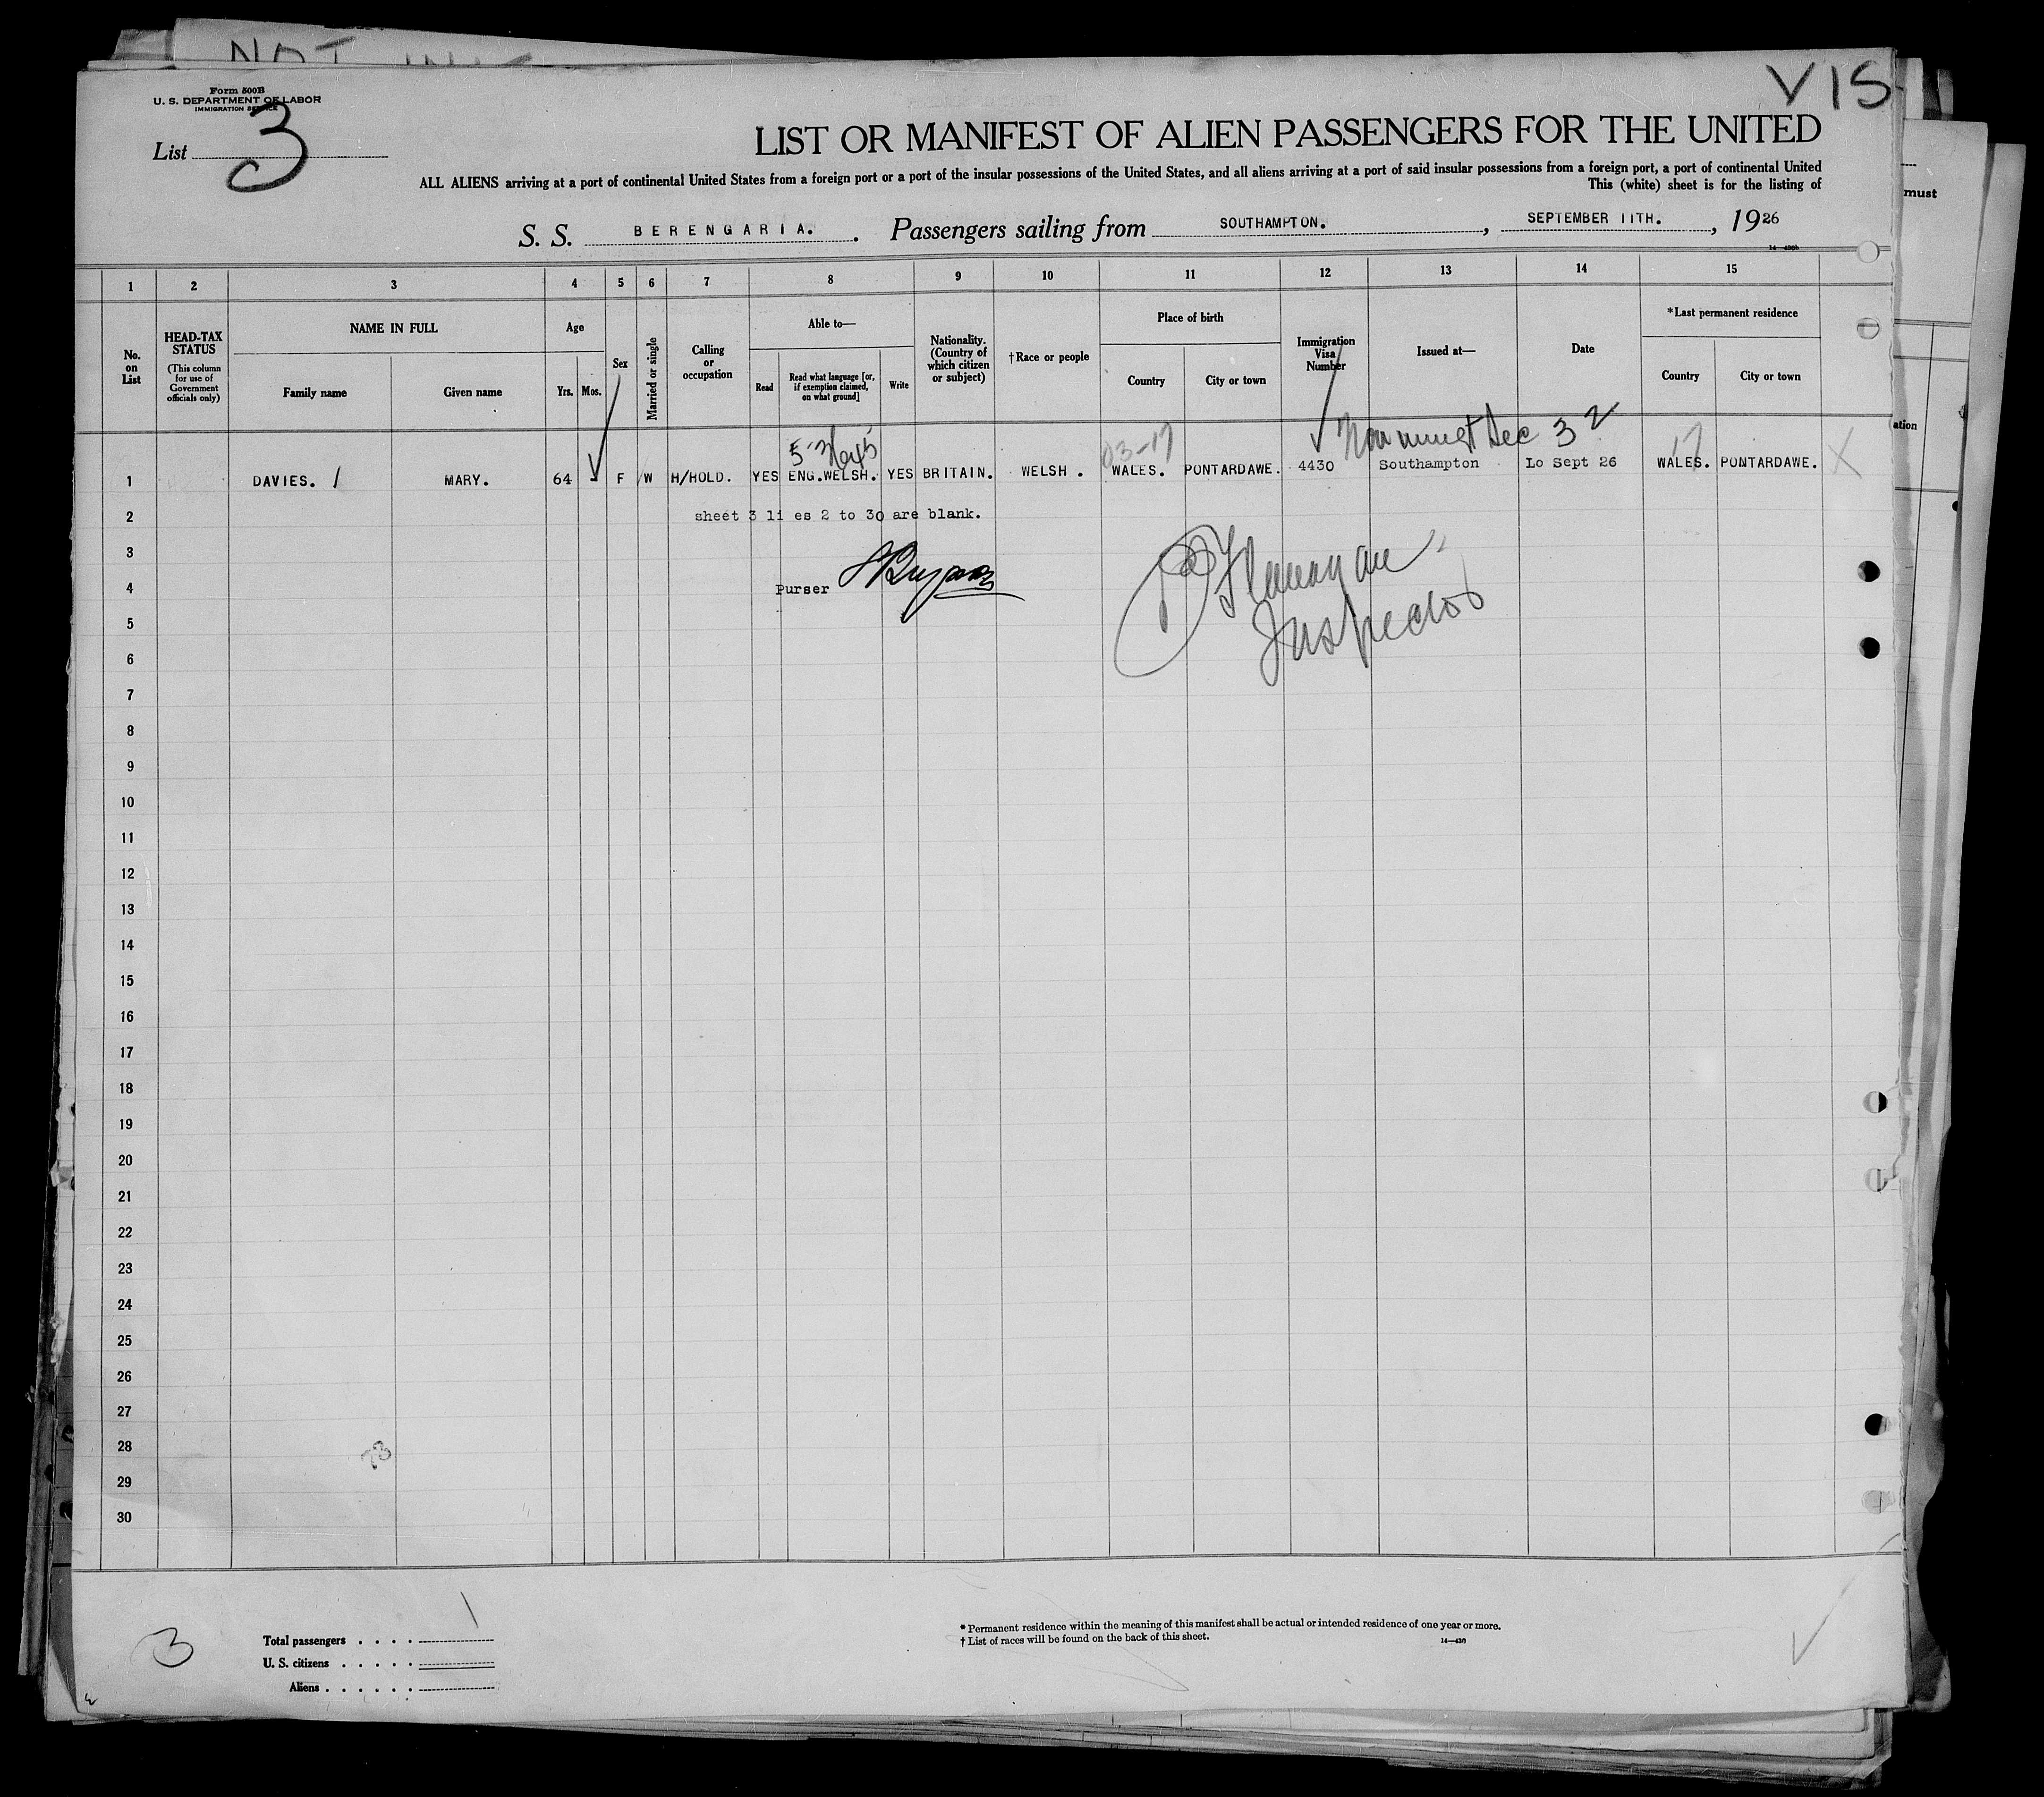 NOT
VIS
Form 500B
U. S. DEPARTMENT OF LABOR
IMMIGRATION SERVICE
List 3
LIST OR MANIFEST OF ALIEN PASSENGERS FOR THE UNITED
ALL ALIENS arriving at a port of continental United States from a foreign port or a port of the insular possessions of the United States, and all aliens arriving at a port of said insular possessions from a foreign port, a port of continental United
This (white) sheet is for the listing of
must
S. S. BERENGARIA. Passengers sailing from SOUTHAMPTON. , SEPTEMBER 11TH. , 1926
1 2 3 4 5 6 7 8 9 10 11 12 13 14 15
No. on List
HEAD-TAX STATUS
(This column for use of Government officials only)
NAME IN FULL
Family name Given name
Age
Yrs. Mos.
Sex
Married or single
Calling or occupation
Able to—
Read
Read what language [or, if exemption claimed, on what ground]
Write
Nationality. (Country of which citizen or subject)
†Race or people
Place of birth
Country City or town
Immigration Visa Number
Issued at—
Date
*Last permanent residence
Country City or town
ation
03-17 Sec 3 2 17
1 DAVIES. MARY. 64 F W H/HOLD. YES ENG.WELSH. YES BRITAIN. WELSH . WALES. PONTARDAWE. 4430 Southampton Lo Sept 26 WALES. PONTARDAWE. X
2 sheet 3 li es 2 to 30 are blank.
3
4 Purser
Flanagan
Inspector
5
6
7
8
9
10
11
12
13
14
15
16
17
18
19
20
21
22
23
24
25
26
27
28
29
30
3
Total passengers . . . . 1
U. S. citizens . . . . .
Aliens . . . . . .
* Permanent residence within the meaning of this manifest shall be actual or intended residence of one year or more.
† List of races will be found on the back of this sheet.
14—430